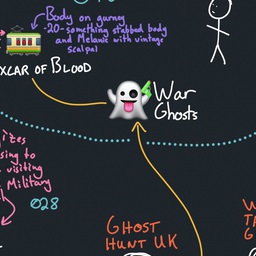 Body on gurney
-20-something stabbed body
and Melanie with vintage
scalpel
XCAR OF BLOOD
War
Ghosts
visiting
Military
028
GHOST
HUNT UK